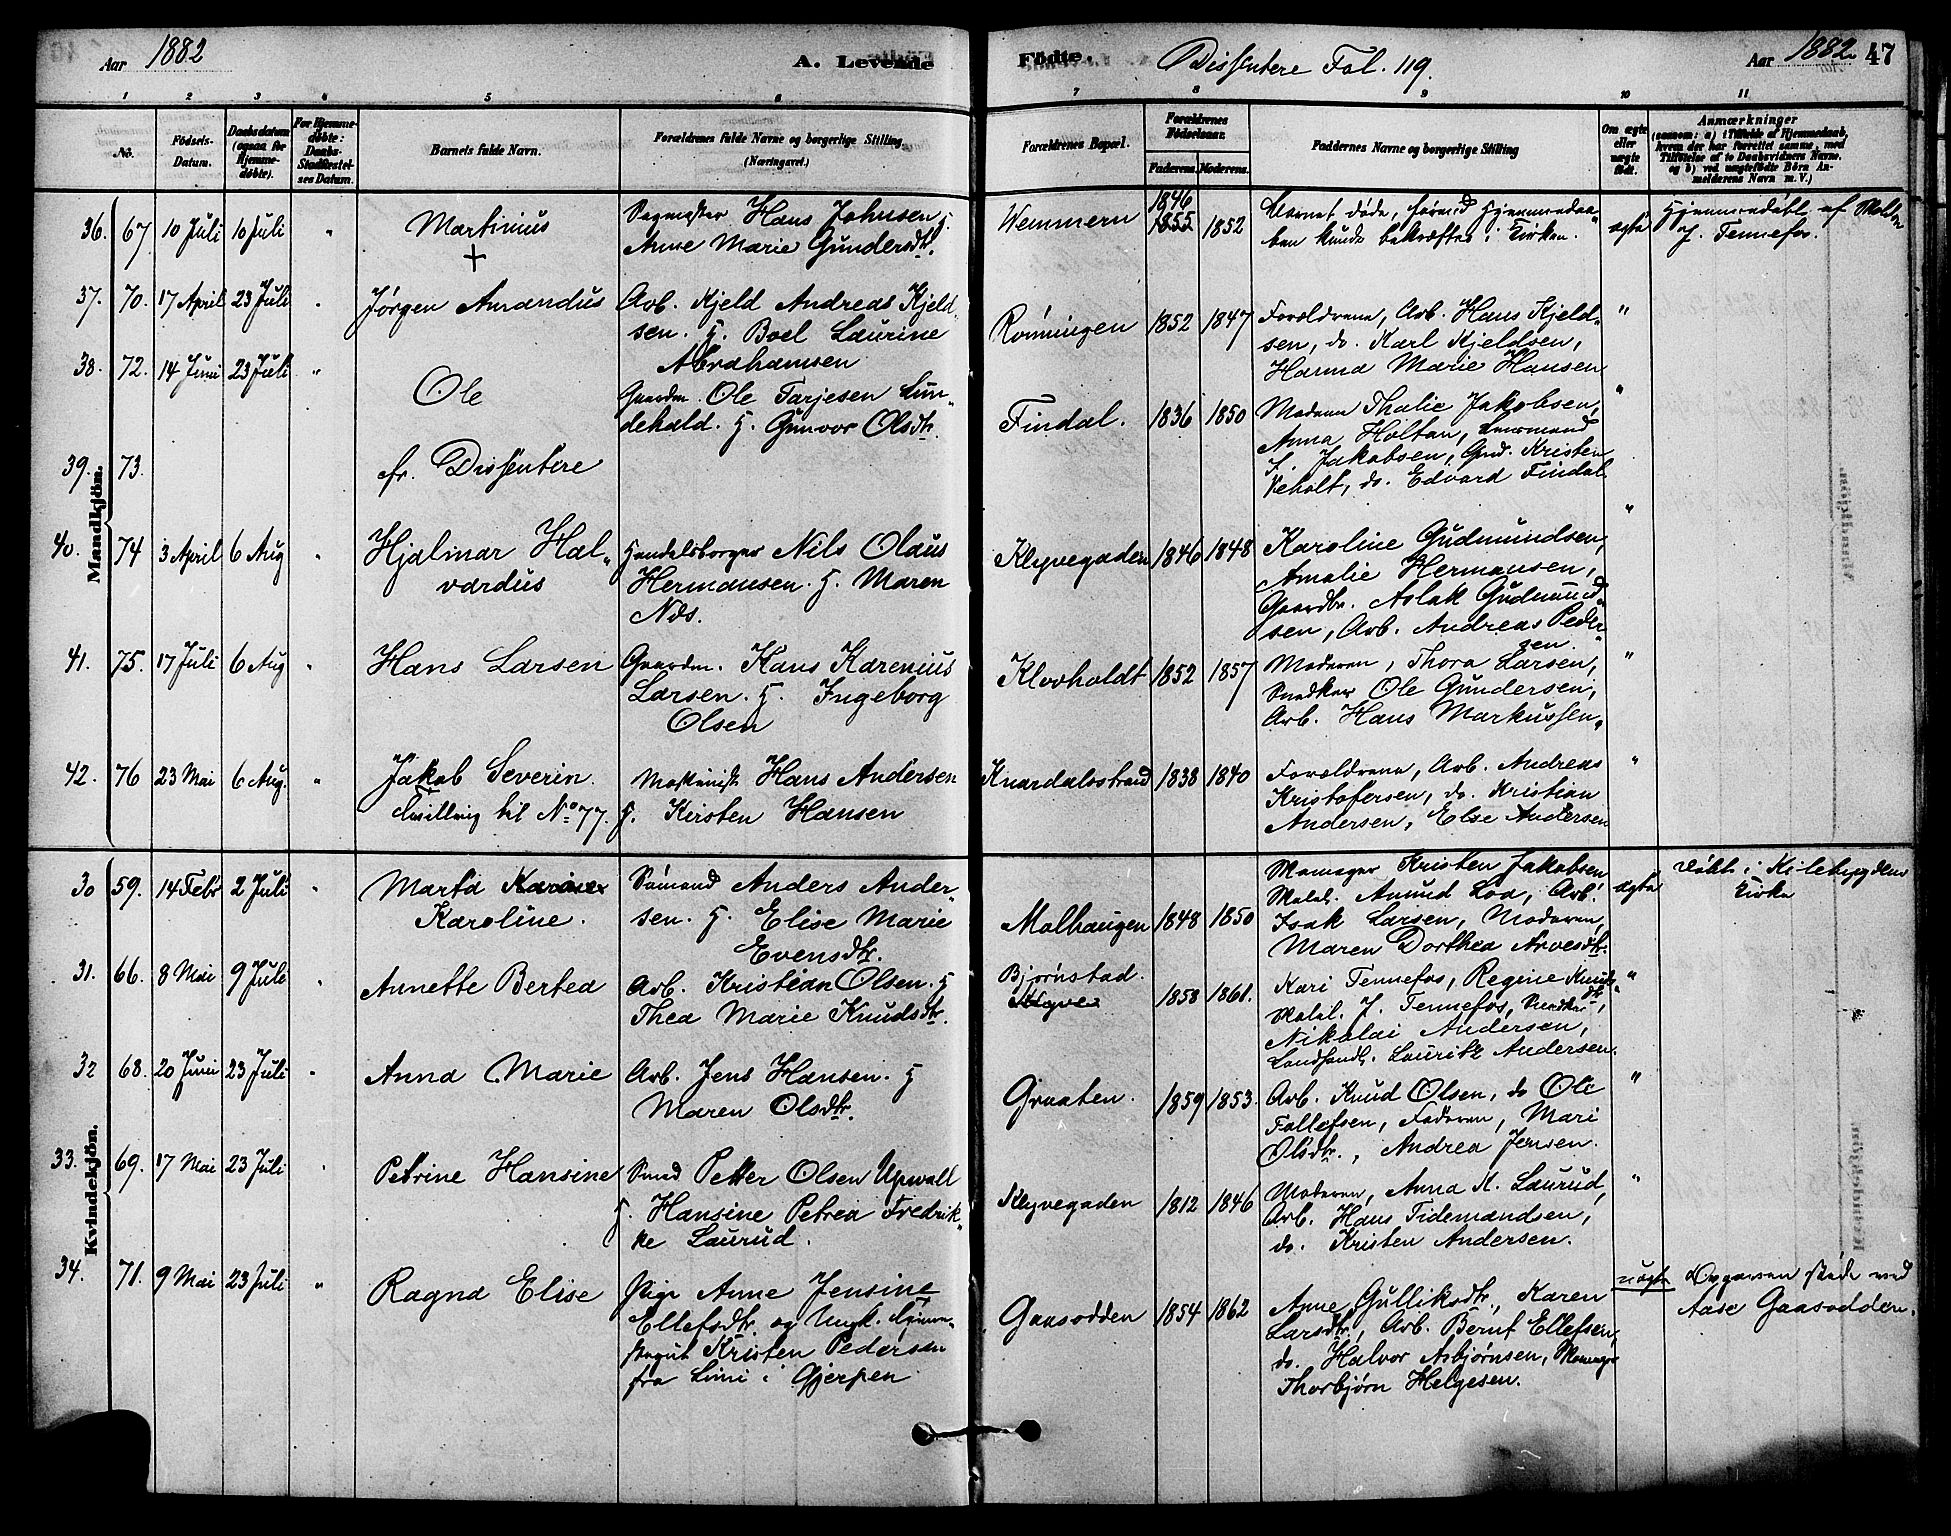 Aar 1882 A. Levende Födte. Dissentere Fol. 119. Aar 1882 47
1 2 3 4 5 6 7 8 9 10 11
No. Födsels-Datum. Daabsdatum (ogsaa for Hjemmedøbte). For Hjemmedøbte: Daabs-Stadfæstelses Datum. Barnets fulde Navn. Forældrenes fulde Navne og borgerlige Stilling (Næringsvei). Forældrenes Bopæl. Forældrenes Födselsaar. Faderens. Moderens. Faddernes Navne og borgerlige Stilling Om ægte eller uægte født. Anmærkninger
(saasom: a) i Tilfælde af Hjemmedaab, hvem der har forrettet samme, med Tilføielse af to Daabsvidners Navne. og b) ved uægtefødte Børn Anmelderens Navn m. V.)
Mandkjön.
36. 67. 10 Juli 10 Juli " Martinius +
Hans Johnsen H.
Anne Marie Gundersdtr.
Wemmern 1846 1855 1852
Barnet døde, førend Hjemmedaa-
ben kunde bekræftes i Kirken.
ægte
Hjemmedøbt af
J. Tennefos.
37. 70. 17 April 23 Juli " Jørgen Amandus
Arb. Kjeld Andreas Kjeld-
sen. H. Boel Laurine
Abrahamsen
Rønningen 1852 1847
Forældrene, Arb. Hans Kjeld-
sen, do. Karl Kjeldsen,
Hanna Marie Hansen
"
38. 72. 14 Juni 23 Juli " Ole
Gaardm. Ole Tarjesen Lun-
dehald. H. Gunvor Olsdtr.
Findal. 1836 1850
Moderen Thalie Jakobsen,
Anna Holtan, Lensmand
Jakobsen, Gmd. Kristen
do. Edvard Findal
"
39. 73. fr. Dissentere
40. 74 3 April 6 Aug " Hjalmar Hal-
vardus
Handelsborger Nils Olaus
Hermansen. H. Maren
Næs.
Klyvegaden 1846 1848
Karoline Gudmundsen,
Amalie Hermansen,
Gaardbr. Aslak Gudmund-
sen, Arb. Andreas Peder-
sen.
"
41. 75. 17 Juli 6 Aug " Hans Larsen
Gaardm. Hans Karenius
Larsen. H. Ingeborg
Olsen
Klovholdt 1852 1857
Moderen, Thora Larsen,
Snedker Ole Gundersen,
Arb. Hans Markussen.
"
42. 76 23 Mai 6 Aug. " Jakob Severin.
Tvilling til No. 77.
Maskinist Hans Andersen
H. Kirsten Hansen
Knardalsstrand 1838 1840
Forældrene, Arb. Andreas
Kristofersen, do. Kristian
Andersen, Else Andersen
"
Kvindekjön.
30 59. 14 Febr 2 Juli " Marta Karine
Karoline.
Sømand Anders Ander-
sen. H. Elise Marie
Evensdtr.
Molhaugen 1848 1850
Kristen Jakobsen
Amund Loa, Arb.
Isak Larsen, Moderen,
Maren Dorthea Arvesdtr.
ægte
Døbt i Kilebygdens
Kirke
31. 66. 8 Mai 9 Juli " Annette Bertea
Arb. Kristian Olsen. H
Thea Marie Knudsdtr.
Bjørnstad.
1858 1861.
Kari Tennefos, Regine Knuds-
dtr, J. Tennefos, Snedker
Nikolai Andersen,
Landhandl. Lauritz Andersen.
"
32 68. 20 Juni 23 Juli " Anna Marie
Arb. Jens Hansen. H
Maren Olsdtr.
Graaten. 1859 1853.
Arb. Knud Olsen, do Ole
Tollefsen, Faderen, Mari
Olsdtr., Andrea Jensen.
"
33. 69. 17 Mai 23 Juli " Petrine Hansine
Smed Petter Olsen Upwall
H. Hansine Petrea Fredrik-
ke Laurud.
Klyvegaden 1812 1846
Moderen, Anna K. Laurud,
Arb. Hans Tidemandsen,
do. Kristen Andersen.
"
34. 71. 9 Mai 23 Juli " Ragna Elise
Pige Anne Jensine
Ellefsdtr. og Ungk.
Kristen Pedersen
fra Limi i Gjerpen
Gaasodden 1854 1862
Anne Gulliksdtr., Karen
Larsdtr., Arb. Bernt Ellefsen,
do. Halvor Asbjørnsen,
Thorbjørn Helgesen.
uægte
ved
Aase Gaasodden.